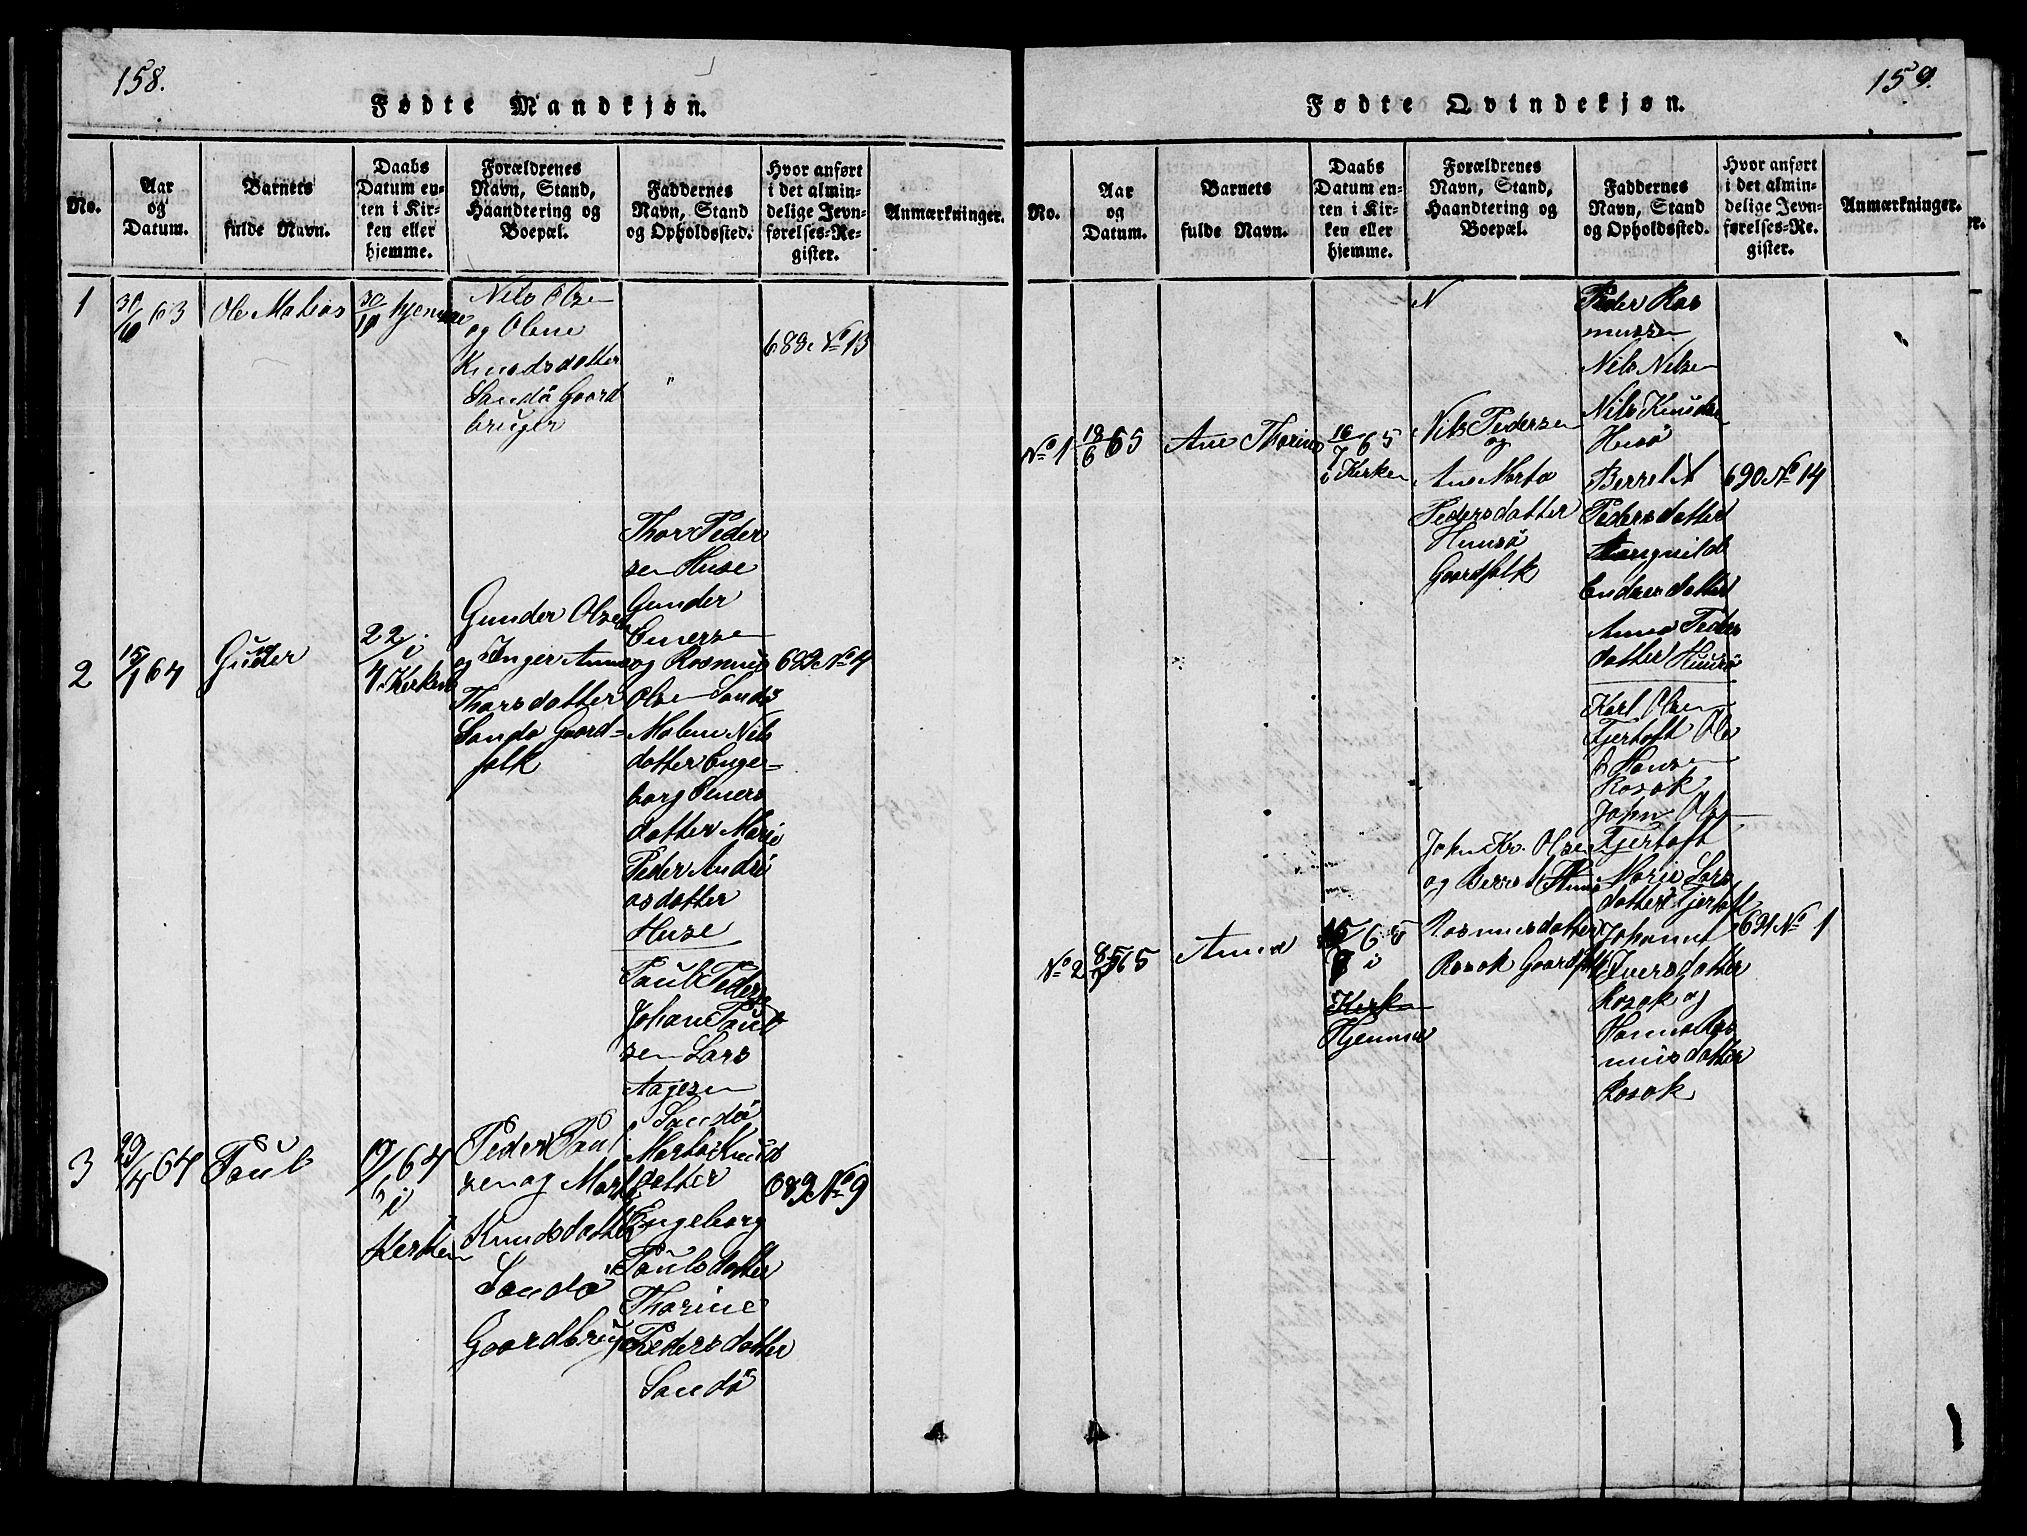 158.
Fødte Mandkjøn.
No.
Aar
og
Datum.
Barnets
fulde Navn.
Daabs
Datum en-
ten i Kir-
ken eller
hjemme.
Forældrenes
Navn, Stand,
Haandtering og
Boepæl.
Faddernes
Navn, Stand
og Opholdssted.
Hvor anført
i det almin-
delige Jevn-
førelses-Re-
gister.
Anmærkninger.
1
30/10 63
Ole Matias
30/10 hjemme
Nils Olsen
og Olene
Knudsdatter
Sandø Gaard
bruger
"
688 No 13
2
15/1 64
Gunder
22/4 i
Kirken
Gunder Olsen
og Inger Anna
Thorsdatter
Sandø Gaard-
folk
Thor Peder
sen Huse
Gunder
Enersen
og Rasmus
Olsen Sandø
Malene Nils
datter Enge-
borg Eners
datter Marie
Peder Andre
asdatter
Huse
692 No 4
3
29/4 64
Paul
19/5 64
i
Kerken
Peder Paul
sen og Marta
Knudsdatter
Sandø
Gaardbruger
Paul Peders
Johan Paul
sen Lars
Aagesen
Sandø
Marta Knuds
datter
Engeborg
Paulsdatter
Thorine
Pedersdatter
Sandø
689 No 9
159.
Fødte Qvindekjøn.
No.
Aar
og
Datum.
Barnets
fulde Navn.
Daabs
Datum en-
ten i Kir-
ken eller
hjemme.
Forældrenes
Navn, Stand,
Haandtering og
Boepæl.
Faddernes
Navn, Stand
og Opholdssted.
Hvor anført
i det almin-
delige Jevn-
førelses-Re-
gister.
Anmærkninger.
N
No 1
18/6 65
Ane Thorine
16/7 65
i Kirken
Nils Pedersen
og
Ane Marta
Pedersdatter
Husø
Gaardfolk
Peder Ras
mussen
Nils Nilsen
Nils Knudsen
Husø
Berret A
Pedersdatter
Endresdatter
Anna Peders
datter Husø
690 No 14
No 2
65
Anna
15/ 65
i
Kirken
Hjemme
John Kr. Olsen
og Berret Anna
Rasmusdatter
Rosok Gaardfolk
Karl Olsen
Fjertoft Ole
Hansen
Rosok
John Olsen
Fjertoft
Marie Lars
datter Fjertoft
Johanne
Iversdatter
Rosok og
Hanna Ras
musdatter
Rosok
694 No 1